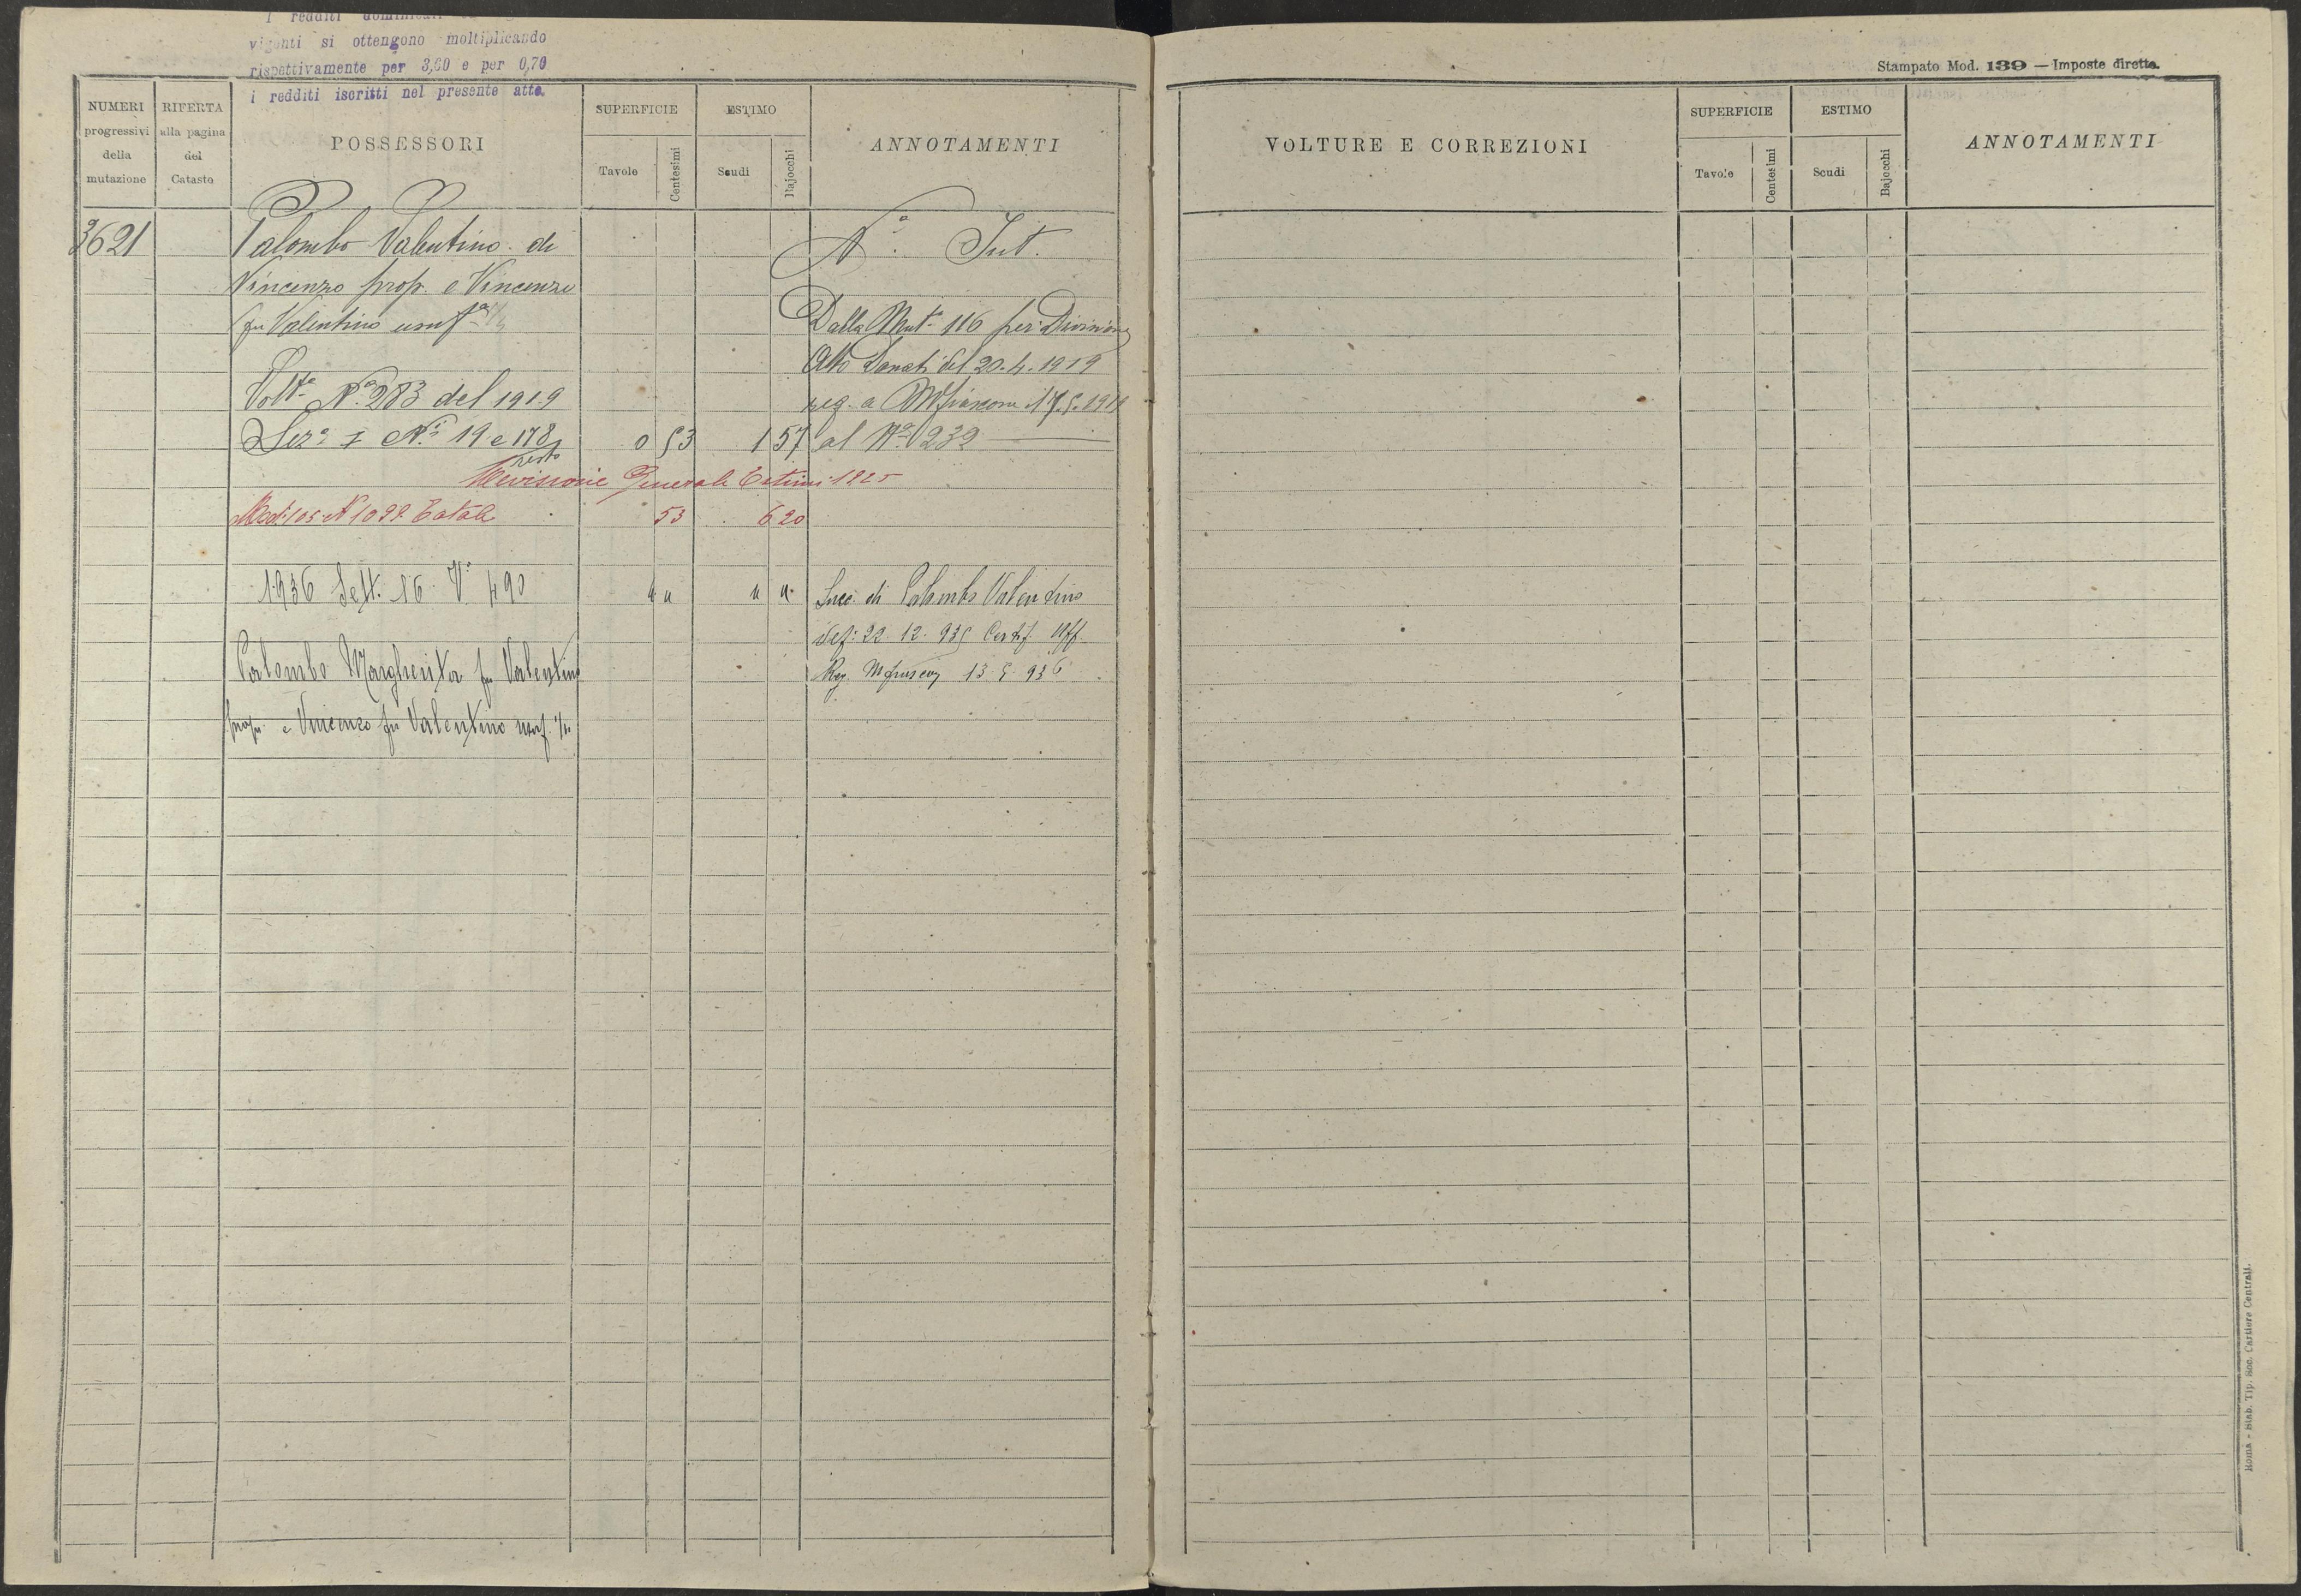 I redditi dominicali
vigenti si ottengono moltiplicando
rispettivamente per 3,60 e per 0,70
i redditi iscritti nel presente atto.
NUMERI progressivi della mutazione
RIFERTA alla pagina del Catasto
POSSESSORI
SUPERFICIE
Tavole
Centesimi
ESTIMO
Scudi
Bajocchi
ANNOTAMENTI
3621
Palombo Valentino di
Vincenzo prop. e Vincenzo
fu Valentino usuf.
N.° Int.
Dalla Mut. 116 per Divisione
Atto Donati del 20.4.1919
Volt. N.° 283 del 1919
reg. a Mfiascone 17.5.1919
Sez. I N.i 19 e 178
resto
0 53 1 57 al N.° 232
Revisione Generale Estimi 1925
Mod. 105 N 1099 Totale 53 6 20
1936 Sett. 16 V. 490 " " " "
Succ. di Palombo Valentino
def: 22.12.935 Certif. Uff.
Palombo Margherita fu Valentino
Reg. Mfiascone 13 5 936
prop. e Vincenzo fu Valentino usuf.
Stampato Mod. 139 — Imposte dirette.
VOLTURE E CORREZIONI
SUPERFICIE
Tavole
Centesimi
ESTIMO
Scudi
Bajocchi
ANNOTAMENTI
Roma - Stab. Tip. Soc. Cartiere Centrali.